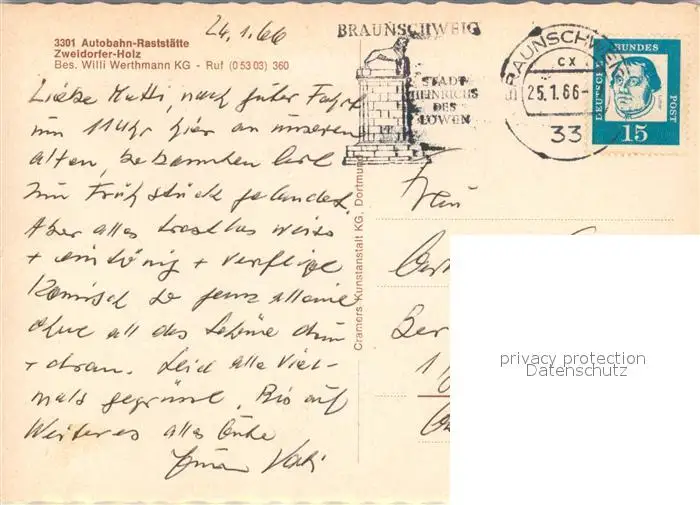 24.1.66
3301 Autobahn-Raststätte
Zweidorfer-Holz
Bes. Willi Werthmann KG - Ruf (0 53 03) 360
Liebe Mutti, nach guter Fahrt
um 11 Uhr hier an unseren
alten, bekannten
zum Frühstück gelandet.
Aber alles trostlos weiss
+ eintönig +
Komisch so ganz alleine
ohne all das Schöne drum
+ dran. Seid alle viel-
mals gegrüsst. Bis auf
Weiteres alles Gute
Cramers Kunstanstalt KG, Dortmund
BRAUNSCHWEIG
STADT
HEINRICHS
DES
LÖWEN
BRAUNSCHWEIG
cx
25.1.66-
33
DEUTSCHE
BUNDES
POST
15
Frau
Ber
privacy protection
Datenschutz